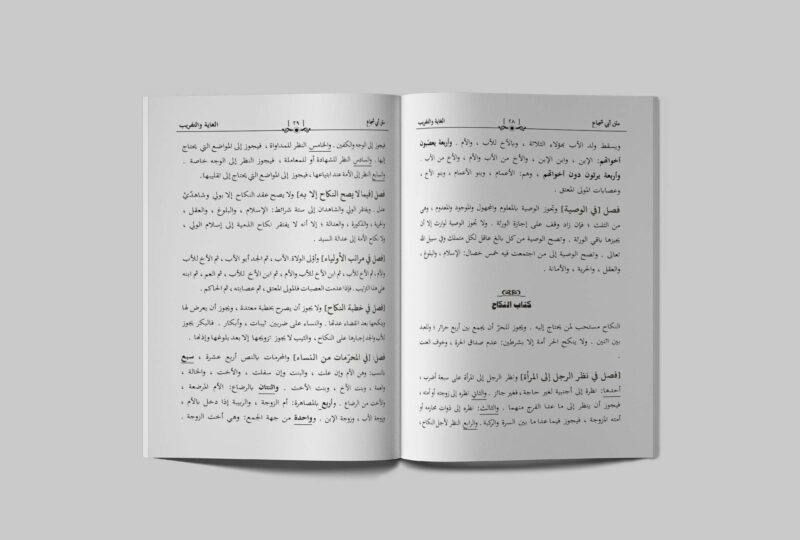 متن أبي شجاع | ٢٨ | الغاية والتقريب
ويسقط ولد الأب بهؤلاء الثلاثة ، وبالأخ للأب ، والأم . وأربعة يعصبون
أخواتهم: الإبن ، وابن الإبن ، والأخ من الأب والأم ، والأخ من الأب .
وأربعة يرثون دون أخواتهم ، وهم: الأعمام ، وبنو الأعمام ، وبنو الأخ ،
وعصابات المولى المعتق .
فصل [في الوصية] وتجوز الوصية بالمعلوم والمجهول والموجود والمعدوم ، وهي
من الثلث ؛ فإن زاد وقف على إجازة الورثة . ولا تجوز الوصية لوارث إلا أن
يجيزها باقي الورثة . وتصح الوصية من كل بالغ عاقل لكل متملك وفي سبيل الله
تعالى . وتصح الوصية إلى من اجتمعت فيه خمس خصال: الإسلام ، والبلوغ ،
والعقل ، والحرية ، والأمانة .
كتاب النكاح
النكاح مستحب لمن يحتاج إليه . ويجوز للحرّ أن يجمع بين أربع حرائر ؛ وللعبد
بين اثنتين . ولا ينكح الحر أمة إلا بشرطين: عدم صداق الحرة ، وخوف العنت
.
[فصل في نظر الرجل إلى المرأة] ونظر الرجل إلى المرأة على سبعة أضرب ،
أحدها: نظره إلى أجنبية لغير حاجة، فغير جائز . والثاني نظره إلى زوجته أو أمته ،
فيجوز أن ينظر إلى ما عدا الفرج منهما . والثالث: نظره إلى ذوات محارمه أو
أمته المزوجة ، فيجوز فيما عدا ما بين السرة والركبة . والرابع النظر لأجل النكاح،
متن أبي شجاع | ٢٩ | الغاية والتقريب
فيجوز إلى الوجه والكفين . والخامس النظر للمداواة ، فيجوز إلى المواضع التي يحتاج
إليها . والسادس النظر للشهادة أو للمعاملة ، فيجوز النظر إلى الوجه خاصة .
والسابع النظر إلى الأمة عند ابتياعها ، فيجوز إلى المواضع التي يحتاج إلى تقليبها.
فصل [فيما لا يصح النكاح إلا به] ولا يصح عقد النكاح إلا بولي وشاهديّ
عدل . ويفتقر الولي والشاهدان إلى ستة شرائط: الإسلام ، والبلوغ ، والعقل ،
والحرية ، والذكورة ، والعدالة ؛ إلا أنه لا يفتقر نكاح الذمية إلى إسلام الولي ،
ولا نكاح الأمة إلى عدالة السيد .
[فصل في مراتب الأولياء] وأوْلى الولاة الأب ، ثم الجد أبو الأب ، ثم الأخ للأب
والأم ، ثم الأخ للأب ، ثم ابن الأخ للأب والأم ، ثم ابن الأخ للأب ، ثم العم ، ثم ابنه
على هذا الترتيب . فإذا عدمت العصبات فالمولى المعتق ، ثم عصابته ، ثم الحاكم .
[فصل في خطبة النكاح] ولا يجوز أن يصرح بخطبة معتدة ، ويجوز أن يعرض لها
وينكحها بعد انقضاء عدتها . والنساء على ضربين ثيبات ، وأبكار . فالبكر يجوز
للأب والجد إجبارها على النكاح، والثيب لا يجوز تزويجها إلا بعد بلوغها وإذنها .
فصل . [في المحرّمات من النساء] والمحرمات بالنص أربع عشرة ، سبع
بالنسب: وهن الأم وإن علت ، والبنت وإن سفلت ، والأخت ، والخالة ،
والعمة ، وبنت الأخ ، وبنت الأخت . واثنتان بالرضاع: الأم المرضعة ،
والأخت من الرضاع . وأربع بالمصاهرة: أم الزوجة ، والربيبة إذا دخل بالأم ،
وزوجة الأب ، وزوجة الإبن . وواحدة من جهة الجمع: وهي أخت الزوجة .